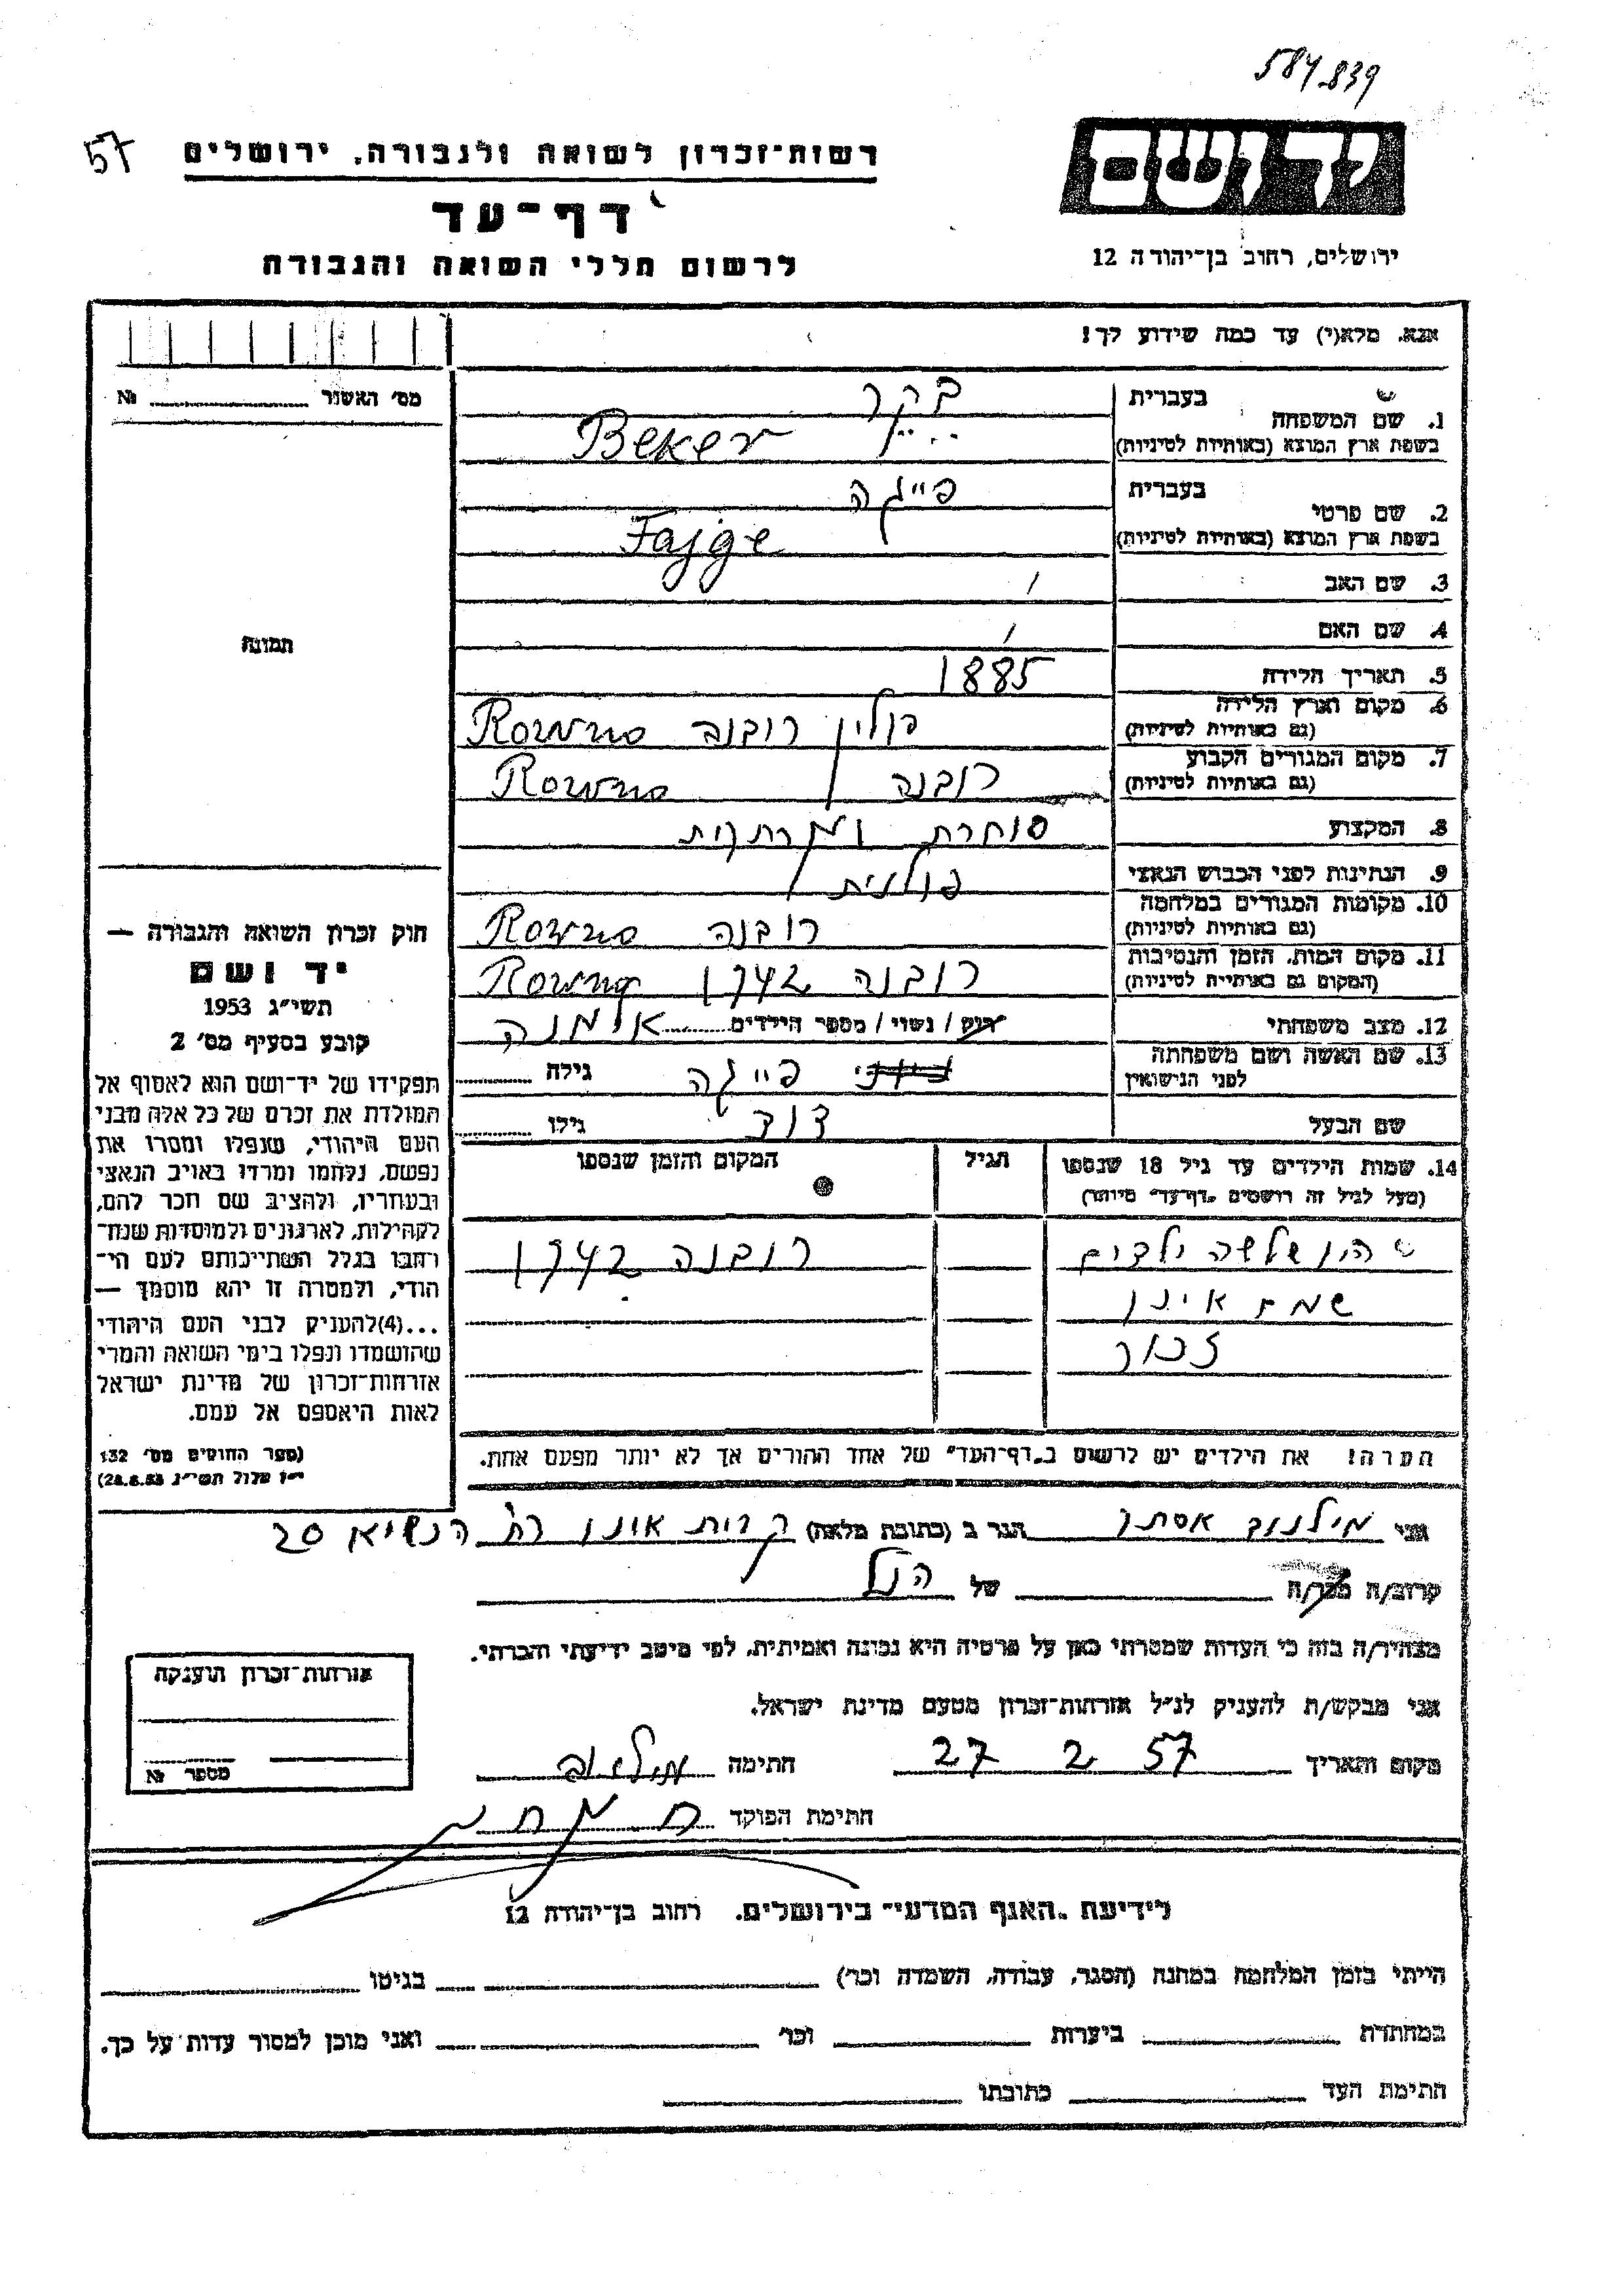 584.839
יד ושם
57
רשות-זכרון לשואה ולגבורה, ירושלים
דף-עד
לרשום חללי השואה והגבורה
ירושלים, רחוב בן-יהודה 12
אנא, מלא(י) עד כמה שידוע לך!
מס׳ האשור № 
1. שם המשפחה
בעברית
בקר
בשפת ארץ המוצא (באותיות לטיניות)
Beker
2. שם פרטי
בעברית
פייגה
בשפת ארץ המוצא (באותיות לטיניות)
Fajge
3. שם האב /
4. שם האם /
5. תאריך הלידה 1885
6. מקום וארץ הלידה
(גם באותיות לטיניות)
פולין רובנה Rowno
7. מקום המגורים הקבוע
(גם באותיות לטיניות)
רובנה Rowno
8. המקצוע
סוחרת
9. הנתינות לפני הכבוש הנאצי
פולנית
10. מקומות המגורים במלחמה
(גם באותיות לטיניות)
רובנה Rowno
11. מקום המות, הזמן והנסיבות
(המקום גם באותיות לטיניות)
רובנה 1942 Rowno
12. מצב משפחתי
רווק / נשוי / מספר הילדים אלמנה
13. שם האשה ושם משפחתה
לפני הנישואין
פייגה גילה
שם הבעל דוד גילו
14. שמות הילדים עד גיל 18 שנספו
(מעל לגיל זה רושמים "דף-עד" מיוחד)
הגיל
המקום והזמן שנספו
היו שלשה ילדים
רובנה 1942
שמם אינו
זכור
הערה! את הילדים יש לרשום ב"דף-העד" של אחד ההורים אך לא יותר מפעם אחת.
תמונה
חוק זכרון השואה והגבורה —
יד ושם
תשי״ג 1953
קובע בסעיף מס׳ 2
תפקידו של יד-ושם הוא לאסוף אל
המולדת את זכרם של כל אלה מבני
העם היהודי, שנפלו ומסרו את
נפשם, נלחמו ומרדו באויב הנאצי
ובעוזריו, ולהציב שם וזכר להם,
לקהילות, לארגונים ולמוסדות שנח-
רבו בגלל השתייכותם לעם הי-
הודי, ולמטרה זו יהא מוסמך —
...(4)להעניק לבני העם היהודי
שהושמדו ונפלו בימי השואה והמרי
אזרחות-זכרון של מדינת ישראל
לאות היאספם אל עמם.
(ספר החוקים מס׳ 132
י״ז אלול תשי״ג 28.8.53)
אני מילנוב אסתר הגר ב (כתובת מלאה) קרית אונו רח׳ הנשיא 20
קרוב/ה מכר/ה של הנ״ל
מצהיר/ה בזה כי העדות שמסרתי כאן על פרטיה היא נכונה ואמיתית, לפי מיטב ידיעתי והכרתי.
אני מבקש/ת להעניק לנ״ל אזרחות-זכרון מטעם מדינת ישראל.
מקום ותאריך 27 2 57 חתימה מילנוב
חתימת הפוקד
אזרחות-זכרון הוענקה
מספר №
לידיעת "האגף המדעי" בירושלים, רחוב בן-יהודה 12
הייתי בזמן המלחמה במחנה (הסגר, עבודה, השמדה וכו׳) בגיטו
במחתרת ביערות וכו׳ ואני מוכן למסור עדות על כך.
חתימת העד כתובתו